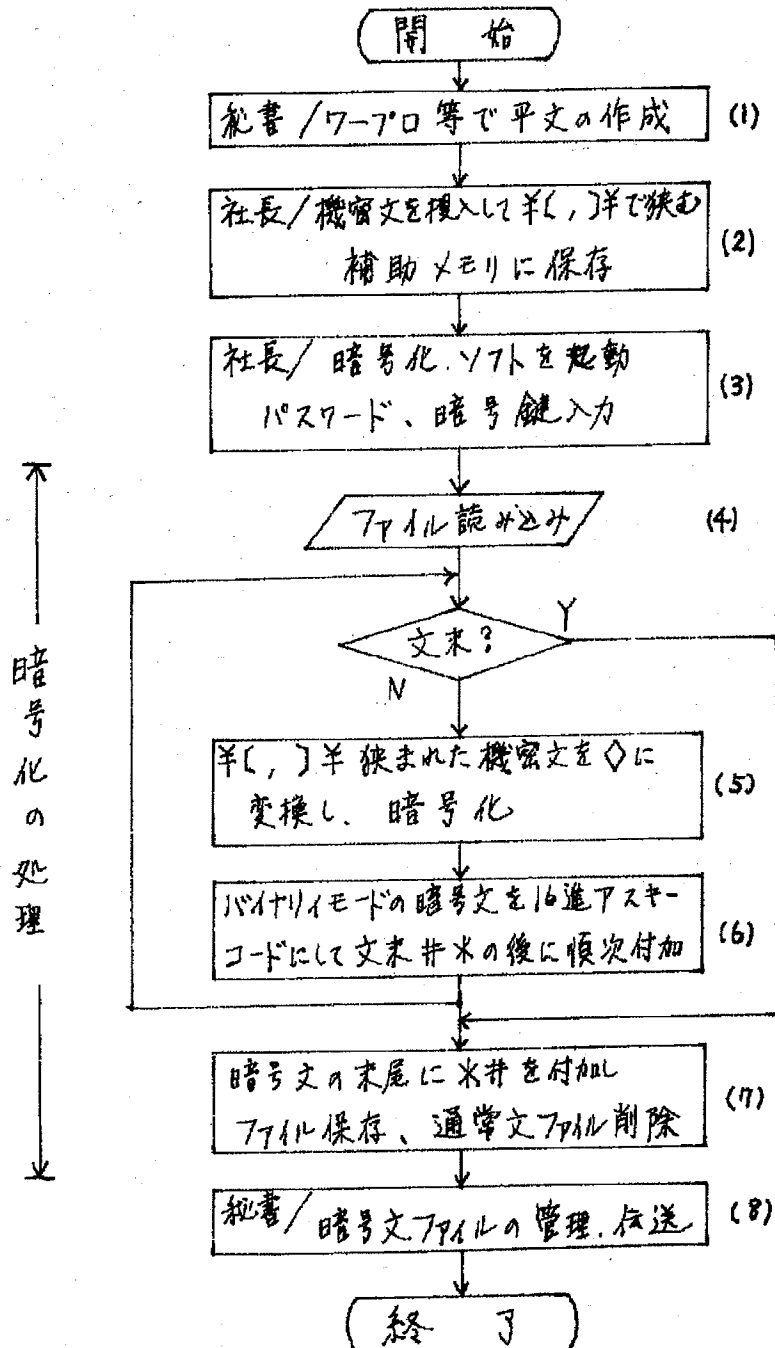 開 始
秘書/ワープロ等で平文の作成 (1)
社長/機密文を挿入して¥[, ]¥で狭む
補助メモリに保存 (2)
社長/暗号化ソフトを起動
パスワード、暗号鍵入力 (3)
ファイル読み込み (4)
文末?
Y
N
¥[, ]¥狭まれた機密文を◇に
変換し、暗号化 (5)
バイナリィモードの暗号文を16進アスキー
コードにして文末#*の後に順次付加 (6)
暗号文の末尾に*#を付加し
ファイル保存、通常文ファイル削除 (7)
秘書/暗号文ファイルの管理.伝送 (8)
終 了
暗号化の処理